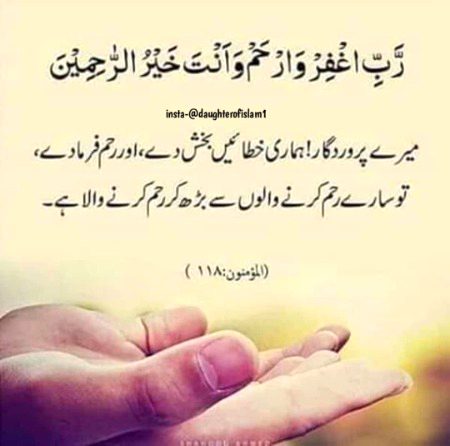 رَّبِّ اغْفِرْ وَارْحَمْ وَاَنْتَ خَيْرُ الرّٰحِمِيْنَ
insta-@daughterofislam1
میرے پروردگار! ہماری خطائیں بخش دے، اور رحم فرما دے،
تو سارے رحم کرنے والوں سے بڑھ کر رحم کرنے والا ہے۔
(المؤمنون: ١١٨)